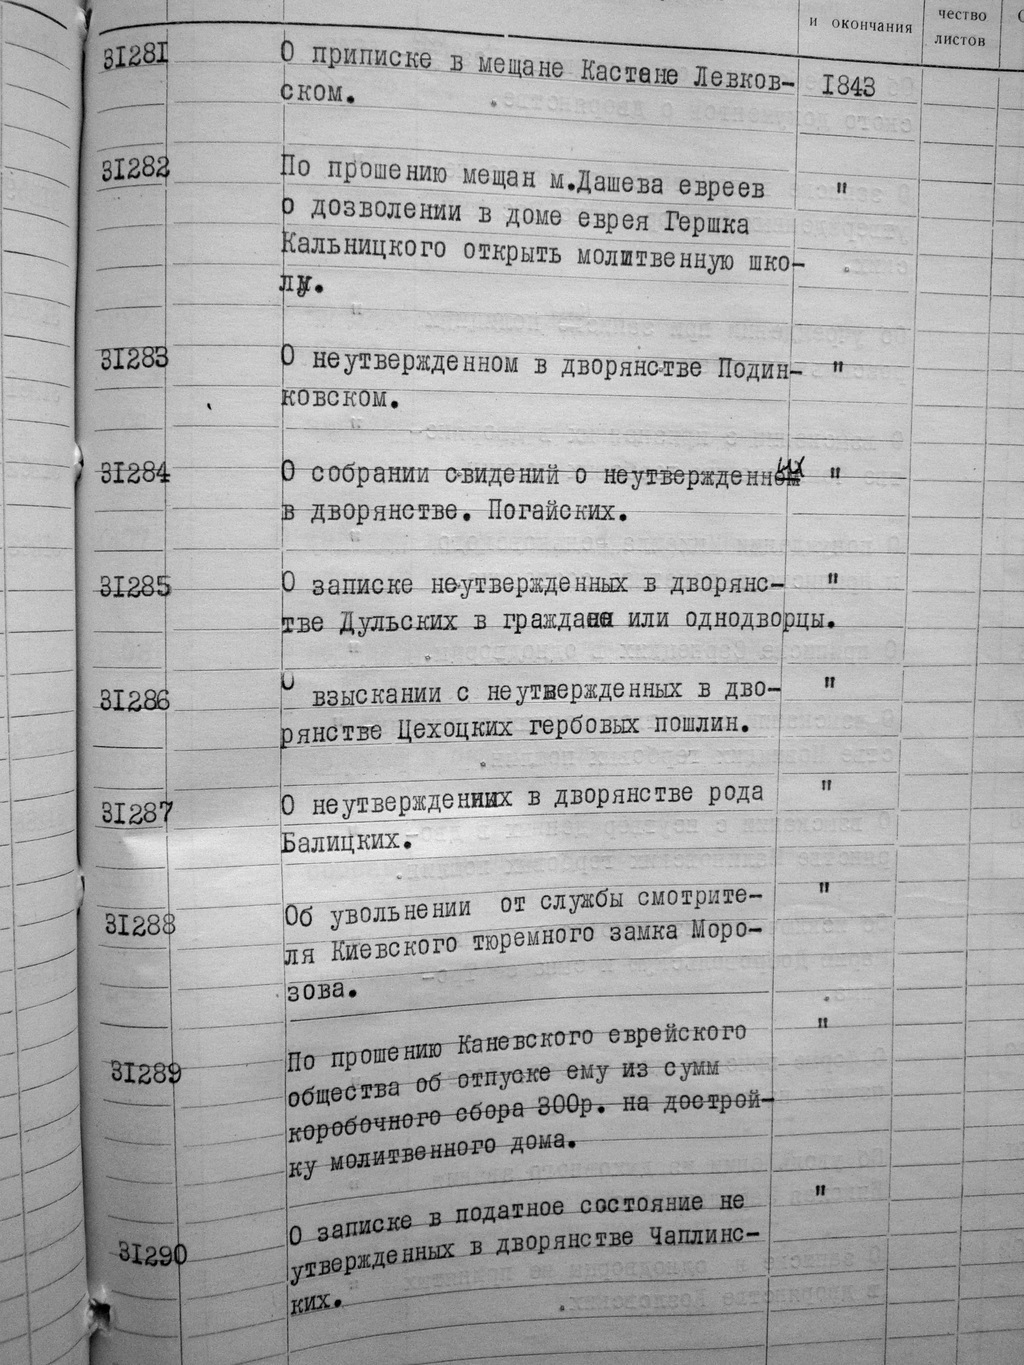 и окончания
чество
листов
31281 О приписке в мещане Кастане Левков- 1843
ском.
31282 По прошению мещан м.Дашева евреев "
о дозволении в доме еврея Гершка
Кальницкого открыть молитвенную шко-
лу.
31283 О неутвержденном в дворянстве Подин- "
ковском.
31284 О собрании свидений о неутвержденных "
в дворянстве. Погайских.
31285 О записке неутвержденных в дворянс- "
тве Дульских в граждане или однодворцы.
31286 О взыскании с неутвержденных в дво- "
рянстве Цехоцких гербовых пошлин.
31287 О неутвержденных в дворянстве рода "
Балицких.
31288 Об увольнении от службы смотрите- "
ля Киевского тюремного замка Моро-
зова.
31289 По прошению Каневского еврейского "
общества об отпуске ему из сумм
коробочного сбора 300р. на дострой-
ку молитвенного дома.
31290 О записке в податное состояние не "
утвержденных в дворянстве Чаплинс-
ких.